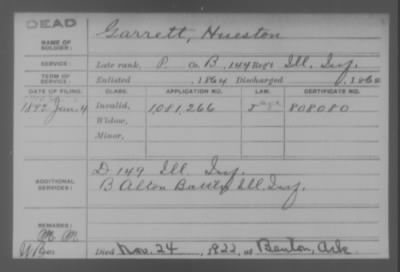 DEAD
NAME OF SOLDIER: Garrett, Hueston
SERVICE: Late rank, P Co. B, 144 Reg't Ill. Inf.
TERM OF SERVICE: Enlisted , 1864 Discharged , 186
DATE OF FILING. CLASS. APPLICATION NO. LAW. CERTIFICATE NO.
1892 Jan 4 Invalid, 1,081,266 808080
Widow,
Minor,
ADDITIONAL SERVICES: D 149 Ill. Inf.
B Alton Batt'y Ill. Inf.
REMARKS:
Died Nov. 24, 1922, at Benton, Ark